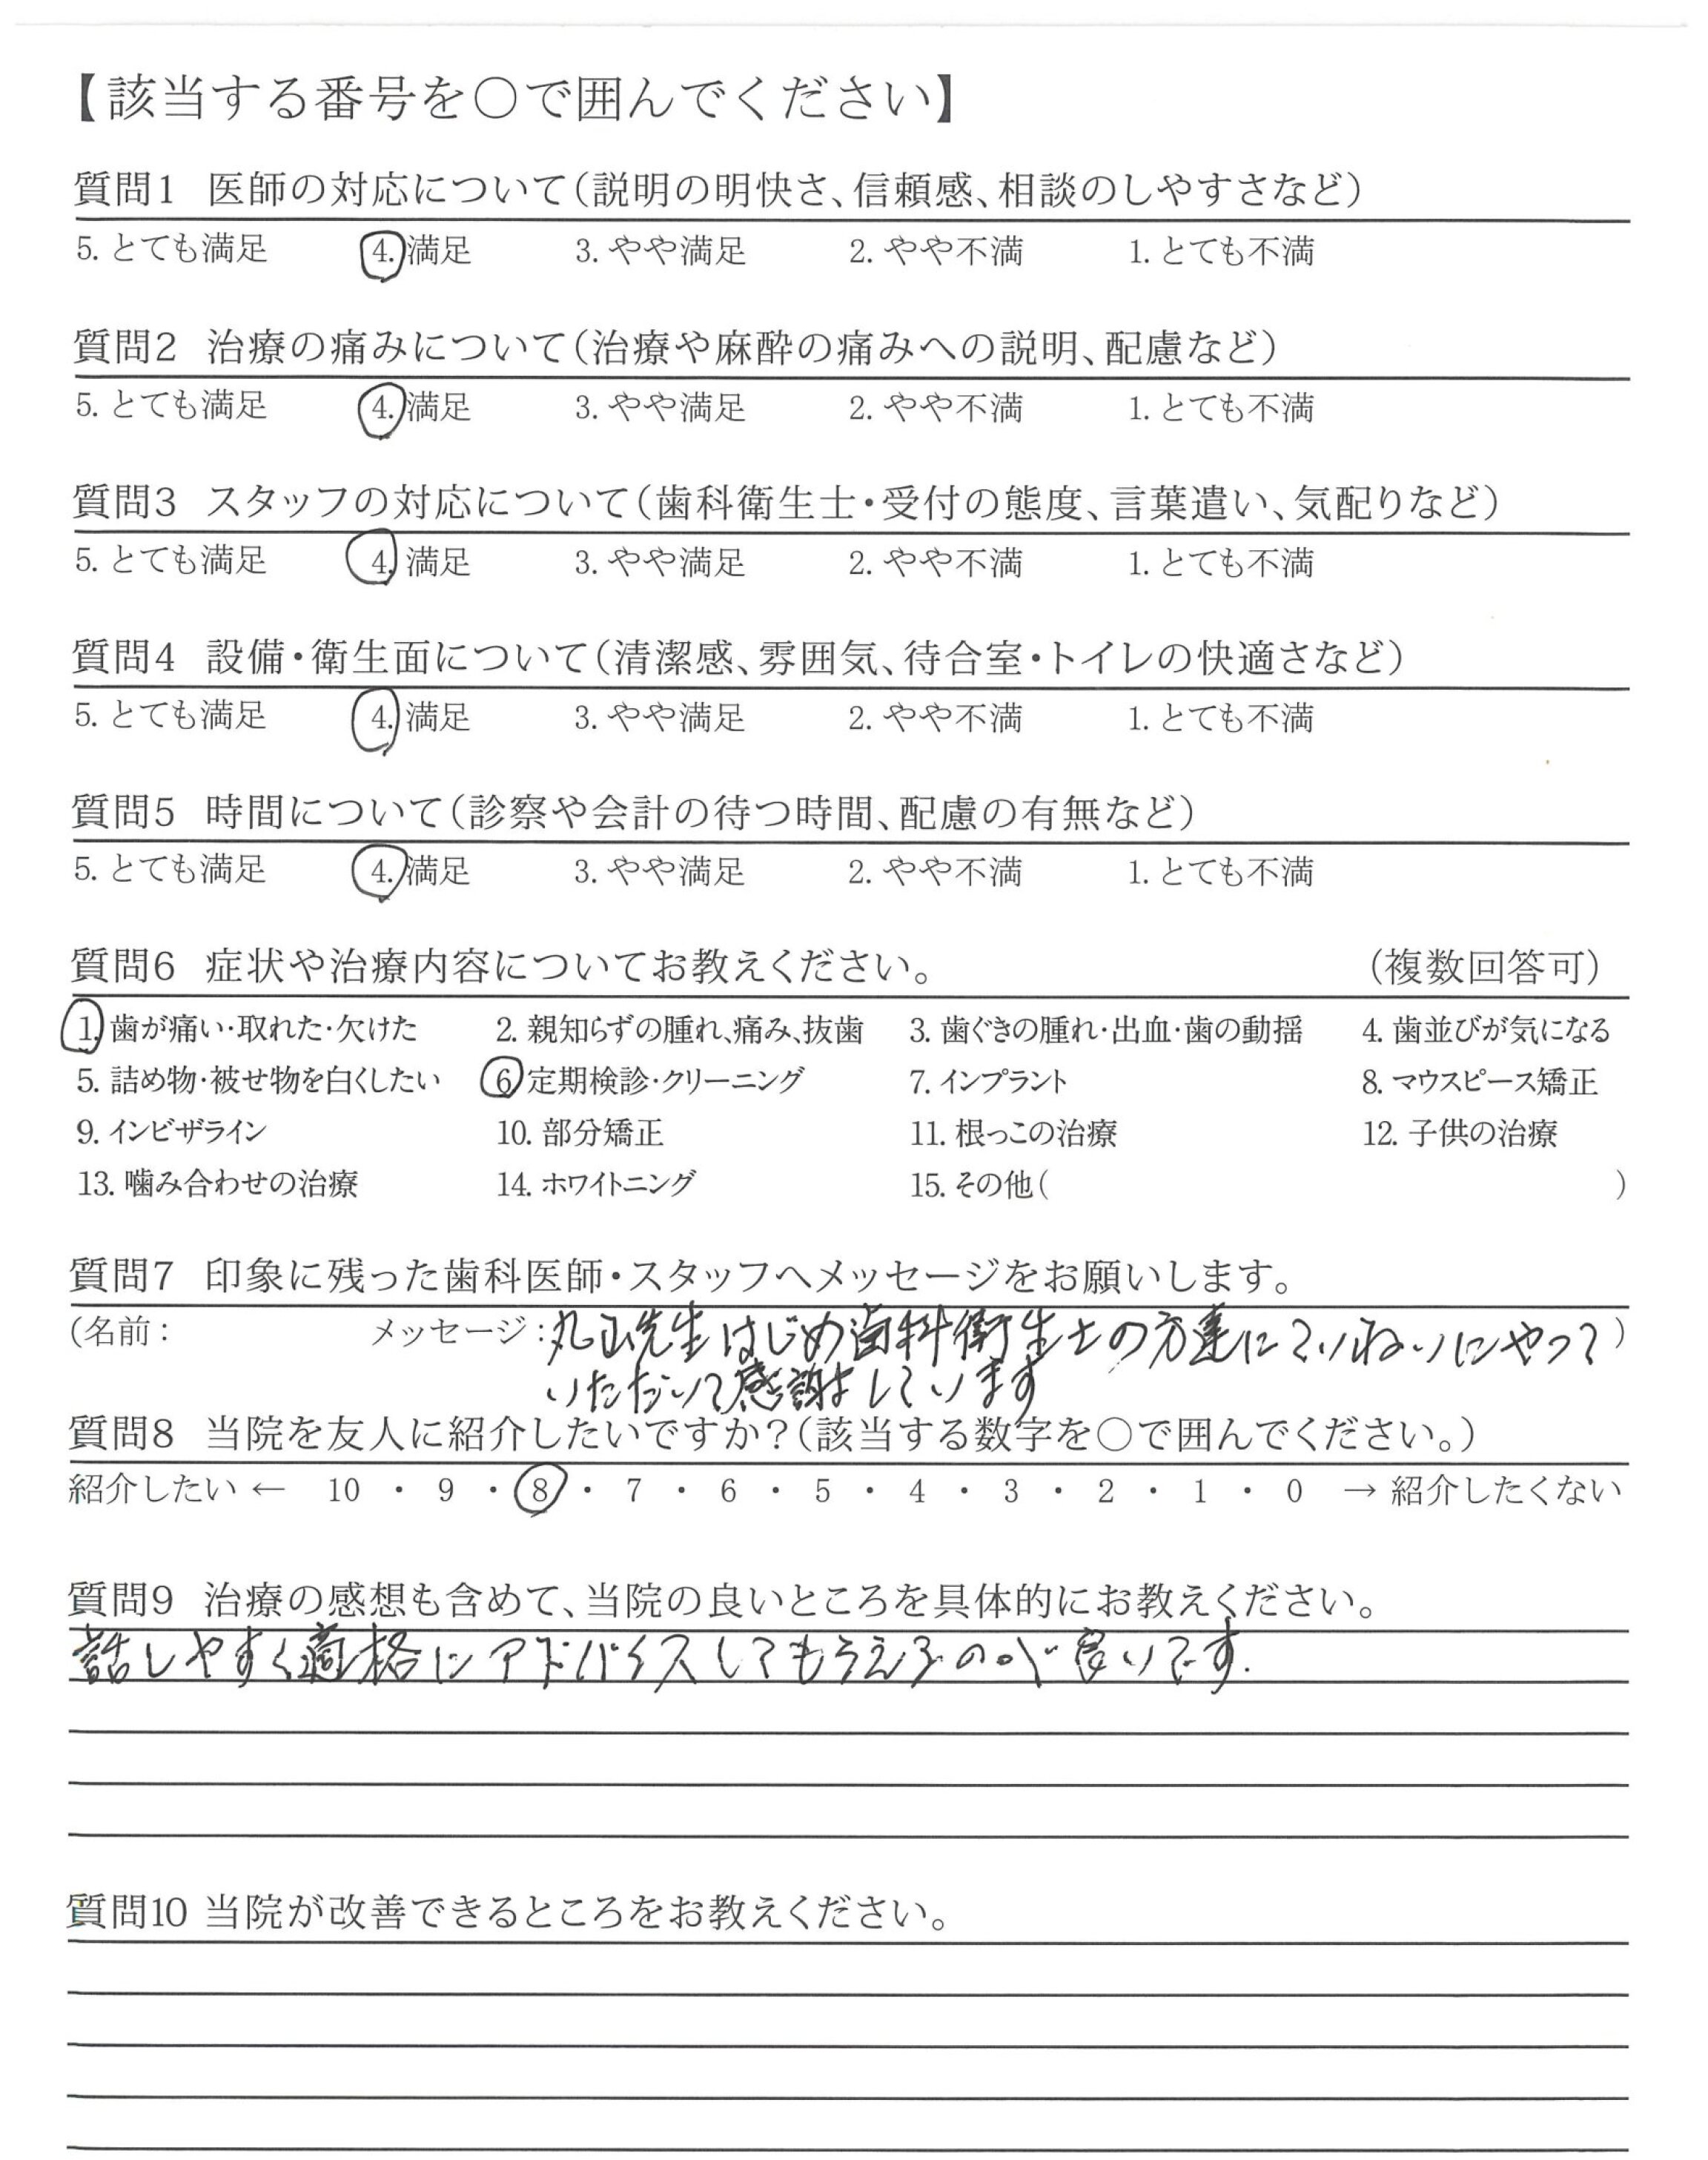 【該当する番号を○で囲んでください】
質問1 医師の対応について(説明の明快さ、信頼感、相談のしやすさなど)
5. とても満足 4. 満足 3. やや満足 2. やや不満 1. とても不満
質問2 治療の痛みについて(治療や麻酔の痛みへの説明、配慮など)
5. とても満足 4. 満足 3. やや満足 2. やや不満 1. とても不満
質問3 スタッフの対応について(歯科衛生士・受付の態度、言葉遣い、気配りなど)
5. とても満足 4. 満足 3. やや満足 2. やや不満 1. とても不満
質問4 設備・衛生面について(清潔感、雰囲気、待合室・トイレの快適さなど)
5. とても満足 4. 満足 3. やや満足 2. やや不満 1. とても不満
質問5 時間について(診察や会計の待つ時間、配慮の有無など)
5. とても満足 4. 満足 3. やや満足 2. やや不満 1. とても不満
質問6 症状や治療内容についてお教えください。 (複数回答可)
1. 歯が痛い・取れた・欠けた 2. 親知らずの腫れ、痛み、抜歯 3. 歯ぐきの腫れ・出血・歯の動揺 4. 歯並びが気になる
5. 詰め物・被せ物を白くしたい 6 定期検診・クリーニング 7. インプラント 8. マウスピース矯正
9. インビザライン 10. 部分矯正 11. 根っこの治療 12. 子供の治療
13. 噛み合わせの治療 14. ホワイトニング 15. その他( )
質問7 印象に残った歯科医師・スタッフへメッセージをお願いします。
(名前: メッセージ:丸山先生はじめ歯科衛生士の方達にていねいにやって)
いただいて感謝をしています
質問8 当院を友人に紹介したいですか?(該当する数字を○で囲んでください。)
紹介したい ← 10 ・ 9 ・ 8 ・ 7 ・ 6 ・ 5 ・ 4 ・ 3 ・ 2 ・ 1 ・ 0 → 紹介したくない
質問9 治療の感想も含めて、当院の良いところを具体的にお教えください。
話しやすく適格にアドバイスしてもらえるのが良いです.
質問10 当院が改善できるところをお教えください。